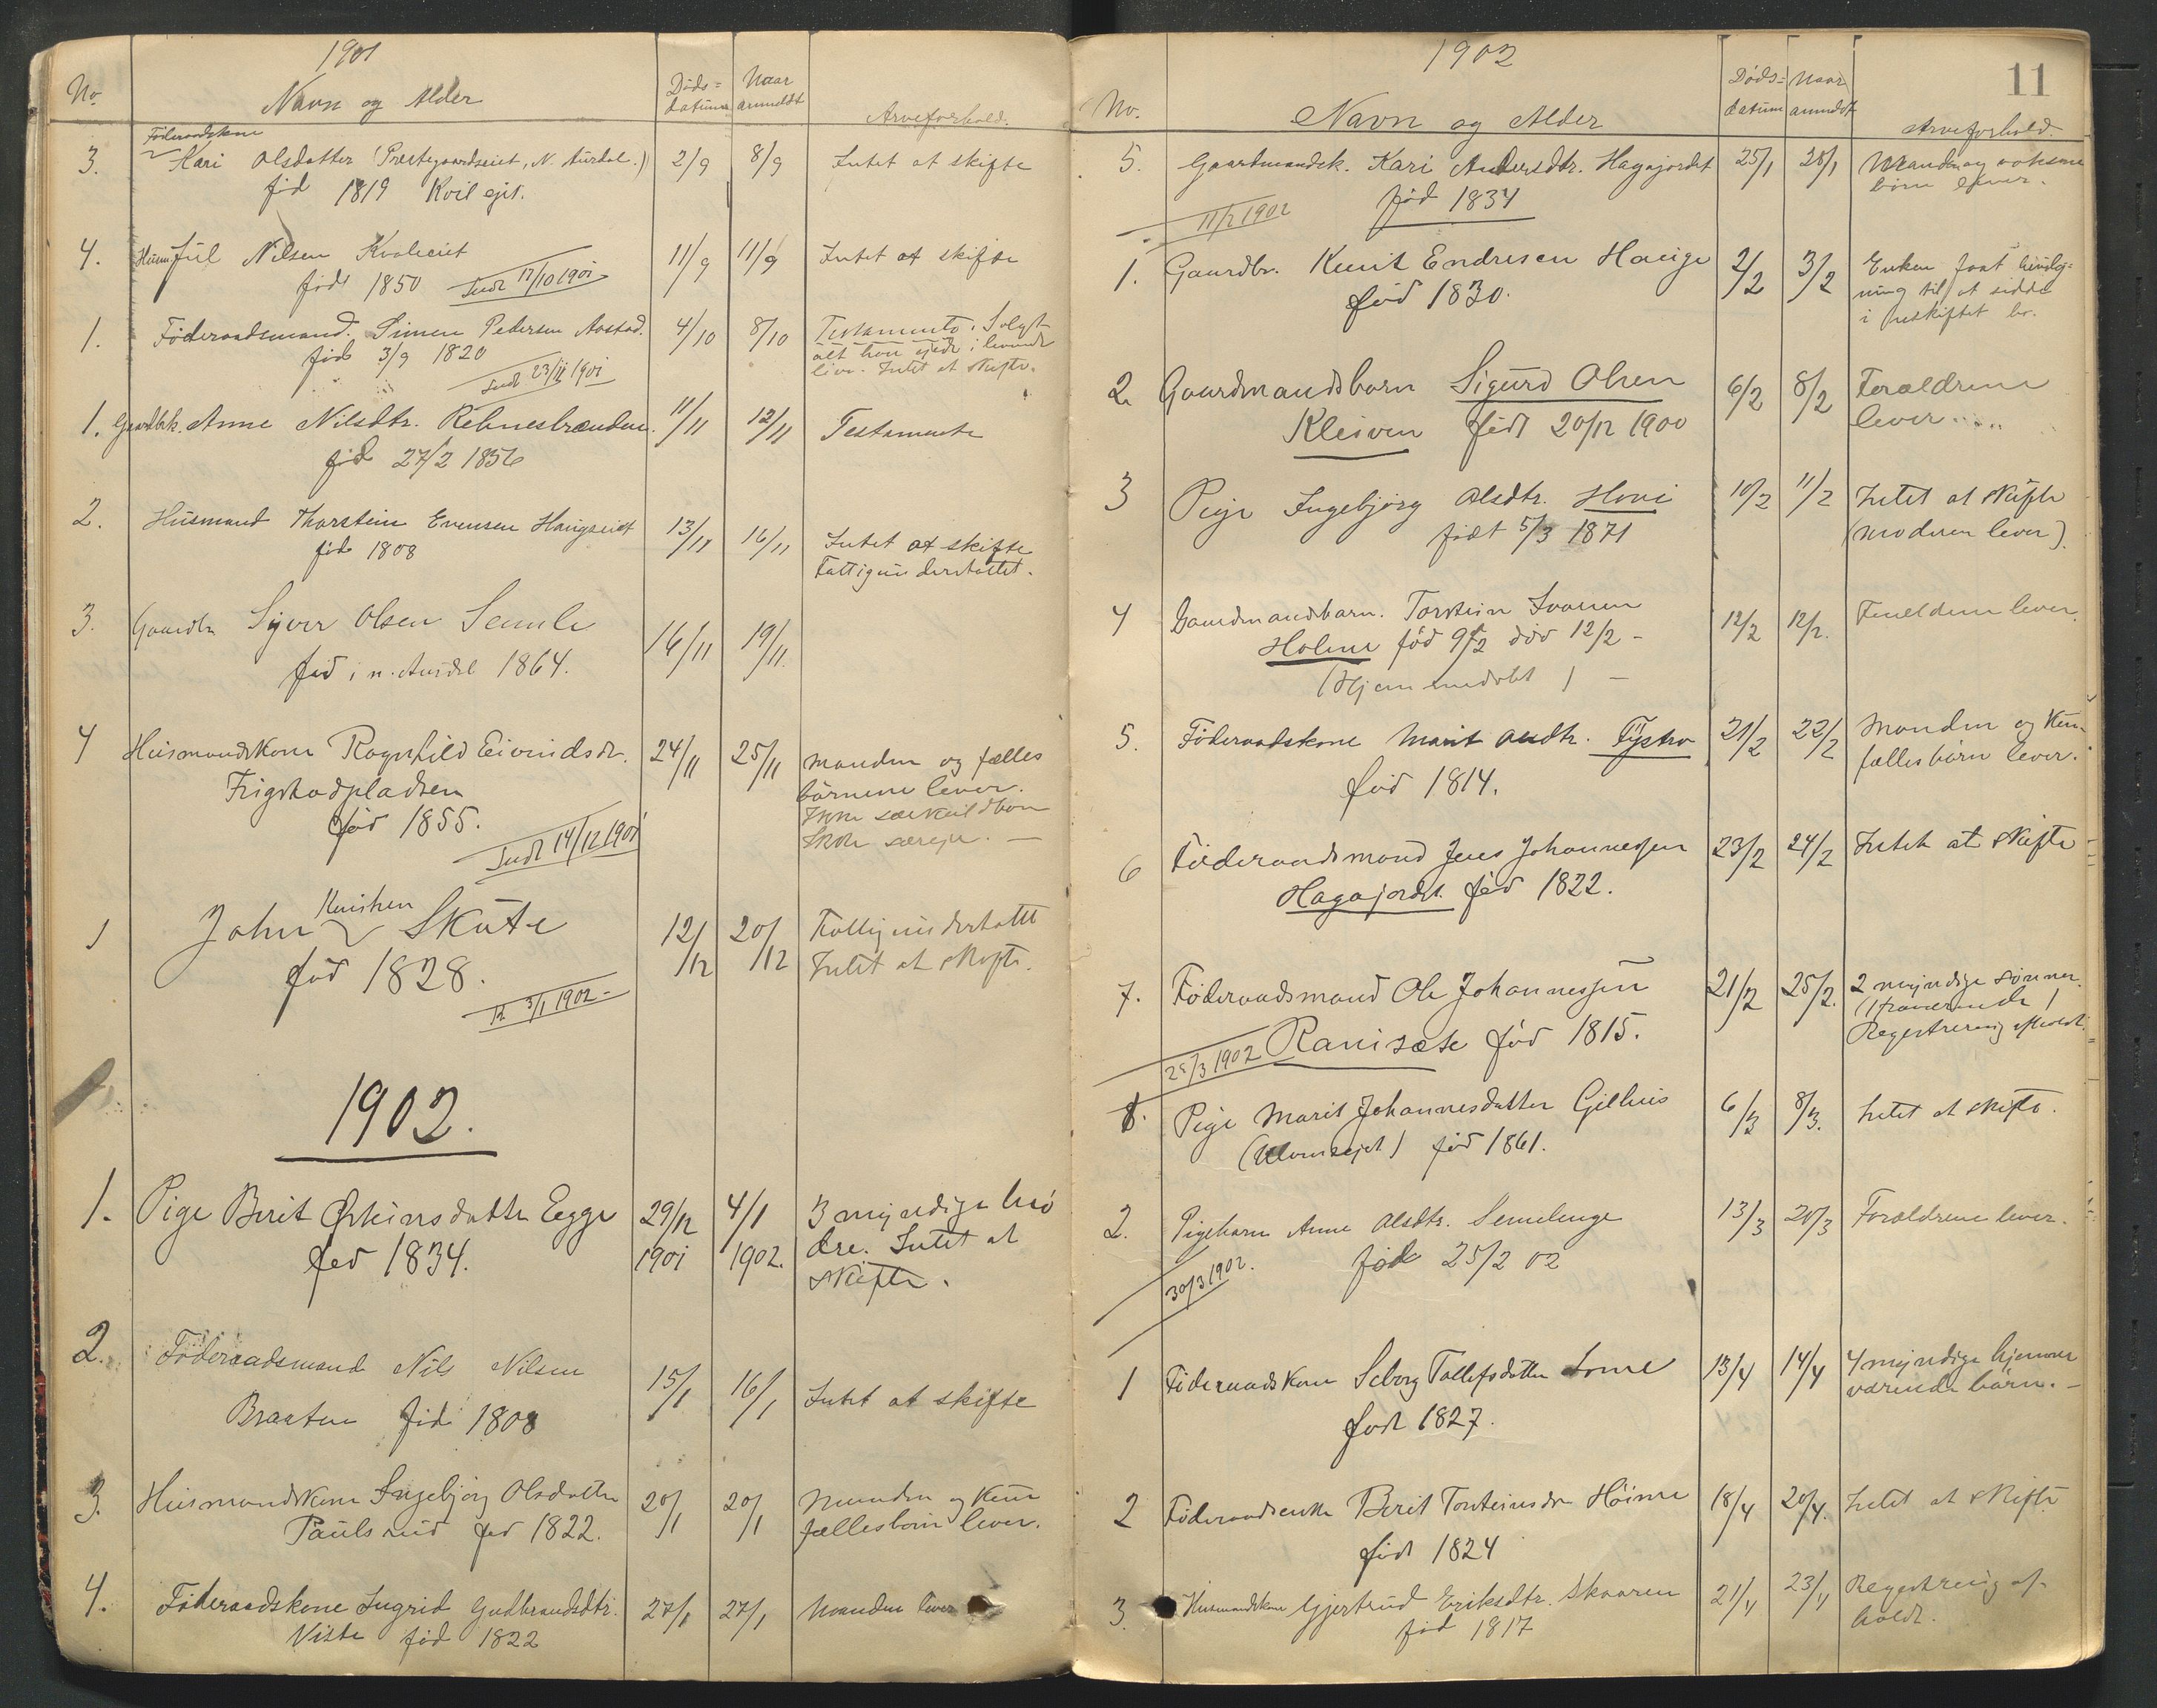 1901
No. Navn og Alder Døds= datum Naar anmeldt Arveforhold.
Føderaadskone
3. Kari Olsdatter (Præstegaardseiet, N. Aurdal.) 2/9 8/9 Intet at skifte
fød 1819
4. Nilsen 11/9 11/9 Intet at skifte
født 1850 Indb 12/10 1901
1. Føderaadsmand. Simen Pedersen 4/10 8/10 Testamente. Solgt
født 3/9 1820 alt han ejede i levende
liv. Intet at skifte.
Indb 23/11 1901
1. Gaardbrk. Anne Nilsdtr. 11/11 12/11 Testamente
fød 27/2 1856
2. Husmand Thorstein Evensen Haugseiet 13/11 16/11 Intet at skifte
fød 1808 Fattigunderstøttet.
3. Gaardbr Syver Olsen Semle 16/11 19/11
fød i n. Aurdal 1864.
4 Husmandskone Ragnhild Eivindsdr. 24/11 25/11 Manden og fælles
Frigstadpladsen børnene lever.
fød 1855. Ikke særkuldbørn
Ikke særeje. —
Indb 14/12 1901
1 John Knutsen Skute 12/12 20/12 Fattigunderstøttet
fød 1828. Intet at skifte.
3/1 1902 -
1902.
1. Pige Berit Østensdatter Egge 29/12 4/1 3 myndige brø
fød 1834. 1901 1902. dre. Intet at
skifte.
2. Føderaadsmand Nils Nilsen 15/1 16/1 Intet at skifte
Braaten fød 1808
3. Husmandskone Ingebjørg Olsdatter 20/1 20/1 Manden og kun
Paulsrud fød 1822. fællesbørn lever.
4. Føderaadskone Ingrid Gudbrandsdtr. 27/1 27/1 Manden lever
Viste fød 1822
11
1902
No. Navn og Alder Døds= datum Naar anmeldt Arveforhold.
5. Gaardmandsk. Kari Andersdtr. Hagajordet 25/1 28/1 Manden og voksne
fød 1834 børn lever.
11/2 1902
1. Gaardbr. Knut Endresen Hauge 2/2 3/2 Enken faat bevilg-
fød 1830. ning til at sidde
i uskiftet bo.
2. Gaardmandsbarn Sigurd Olsen 6/2 8/2 Forældrene
Kleiven født 20/12 1900 lever
3 Pige Ingebjørg Olsdtr. Hovi 10/2 11/2 Intet at skifte
født 5/3 1871 (moderen lever).
4 Gaardmandsbarn. Torstein Ivarsen 12/2 12/2. Forældrene lever.
Holme fød 9/2 død 12/2 -
(Hjemmedøbt) —
5. Føderaadskone Marit Andtr. 21/2 22/2 Manden og kun
fød 1814. fællesbørn lever.
6 Føderaadsmand Jens Johannessen 23/2 24/2 Intet at skifte
Hagajordet. fød 1822.
7. Føderaadsmand Ole Johannessen 21/2 25/2. 2 myndige sønner.
Ranisæte fød 1815. (1 fraværende)
Registrering afholdt.
25/3 1902
1. Pige Marit Johannesdatter Gilhus 6/3 8/3. Intet at skifte.
fød 1861.
2. Pigebarn Anne Olsdtr. Semelenge 13/3 20/3 Forældrene lever.
født 25/2 02
30/3 1902.
1 Føderaadskone Seborg Tollefsdatter Lome 13/4 14/4 4 myndige hjemme
født 1827. værende børn. -
2 Føderaadsenke Berit Torsteinsdr Høime 18/4 20/4. Intet at skifte
født 1824
3. Husmandskone Gjertrud Eriksdtr. Skaaren 21/4 23/4 Registrering af-
fød 1817 holdt.